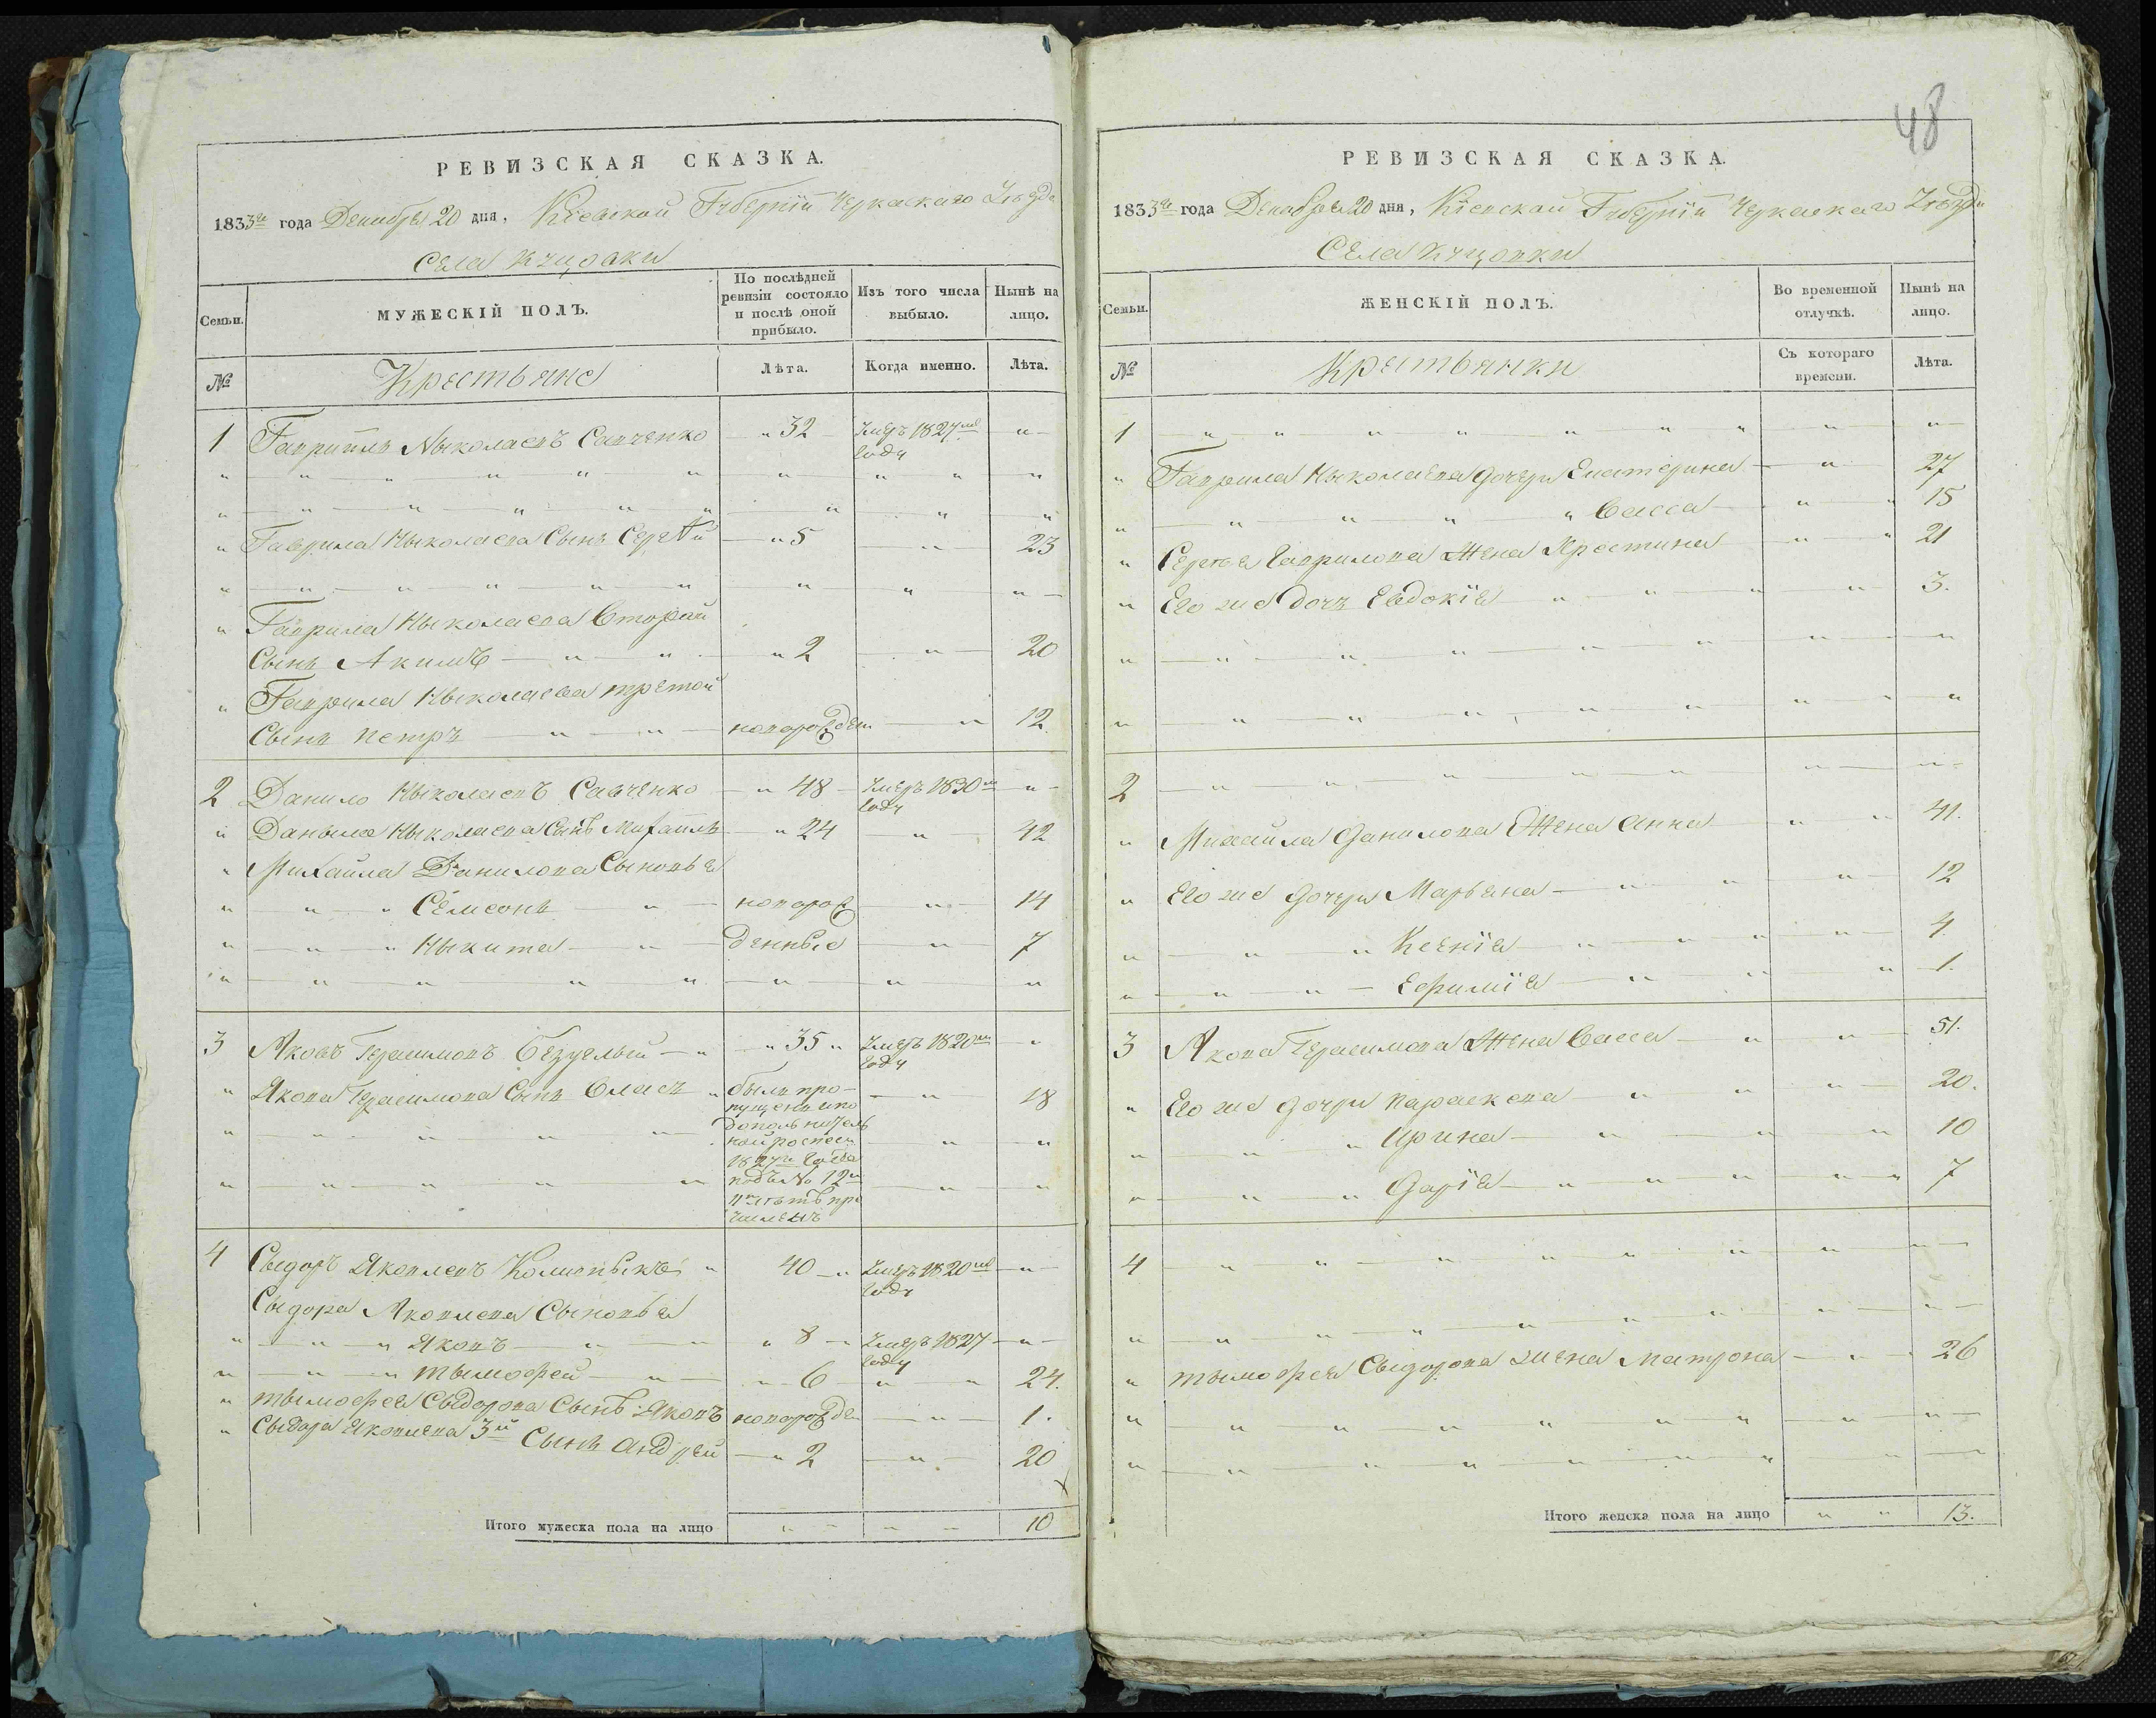 РЕВИЗСКАЯ СКАЗКА.
1833го года Декабря 20 дня, Кіевской Губерніи Черкаскаго Уѣзда
Села Куцовки
Семьи.
МУЖЕСКІЙ ПОЛЪ.
По послѣдней ревизіи состояло и послѣ оной прибыло.
Изъ того числа выбыло.
Нынѣ на лицо.
№
Крестьяне
Лѣта.
Когда именно.
Лѣта.
1 Гавриилъ Ныколаевъ Савченко — „ 32 — Умеръ 1827го году „
„ Гаврила Ныколаева Сынъ Сергѣй — „ 5 — „ — 23
„ Гаврила Ныколаева Вторый
Сынъ Акимъ — „ — „ 2 — „ — 20
„ Гаврила Ныколаева третой
Сынъ Петръ — „ — новорожден — „ — 12.
2 Данило Ныколаевъ Савченко — „ 48 — Умеръ 1830го году — „
„ Данила Ныколаева Сынъ Михаилъ — „ 24 — „ — 42
„ Михаила Данилова Сыновья
„ „ „ Семсонъ — „ — новорож — „ — 14
„ „ „ Ныкита — „ — денные — „ — 7
3 Яковъ Герасимовъ Безуглый — „ — „ 35 „ Умеръ 1820го году — „
„ Якова Герасимова Сынъ Власъ „ былъ про- — „ — 18
пущенъ и по
дополнитель
ной
1827го года
подъ № 12м
причисленъ
4 Сыдоръ Яковлевъ „ 40 — „ Умеръ 1820го году — „
Сыдора Яковлева Сыновья
„ „ „ Яковъ — „ — „ 8 — „ Умеръ 1827 году — „
„ „ „ Тымофей — „ — „ 6 — „ „ 24.
„ Тымофея Сыдорова Сынъ Яковъ новорожде — „ — 1.
„ Сыдора Яковлева 3й Сынъ Андрей — „ 2 — „ — 20
Итого мужеска пола на лицо „ „ „ 10
48
РЕВИЗСКАЯ СКАЗКА.
1833го года Декабря 20 дня, Кіевской Губерніи Черкаскаго Уѣзда
Села Куцовки
Семьи.
ЖЕНСКІЙ ПОЛЪ.
Во временной отлучкѣ.
Нынѣ на лицо.
№
Крестьянки
Съ котораго времени.
Лѣта.
1
„ Гаврила Ныколаева Дочери Екатерина — „ — 27
„ „ „ „ „ Васса — „ „ 15
„ Сергѣя Гаврилова Жена Христина — „ „ 21
„ Его же Дочь Евдокія — „ „ „ „ 3.
2
„ Михаила Данилова Жена Анна — „ „ 41.
„ Его же Дочери Марьяна — „ „ „ 12
„ „ „ Ксенія — „ „ „ „ 4
„ „ „ Ефимія — „ „ „ 1.
3 Якова Герасимова Жена Васса — „ „ 51.
„ Его же Дочери Параскева — „ „ „ 20.
„ „ „ Ирина — „ „ „ 10
„ „ „ Дарія — „ „ „ „ 7
4
„ Тымофея Сыдорова жена Матрона — „ 26
Итого женска пола на лицо „ „ 13.